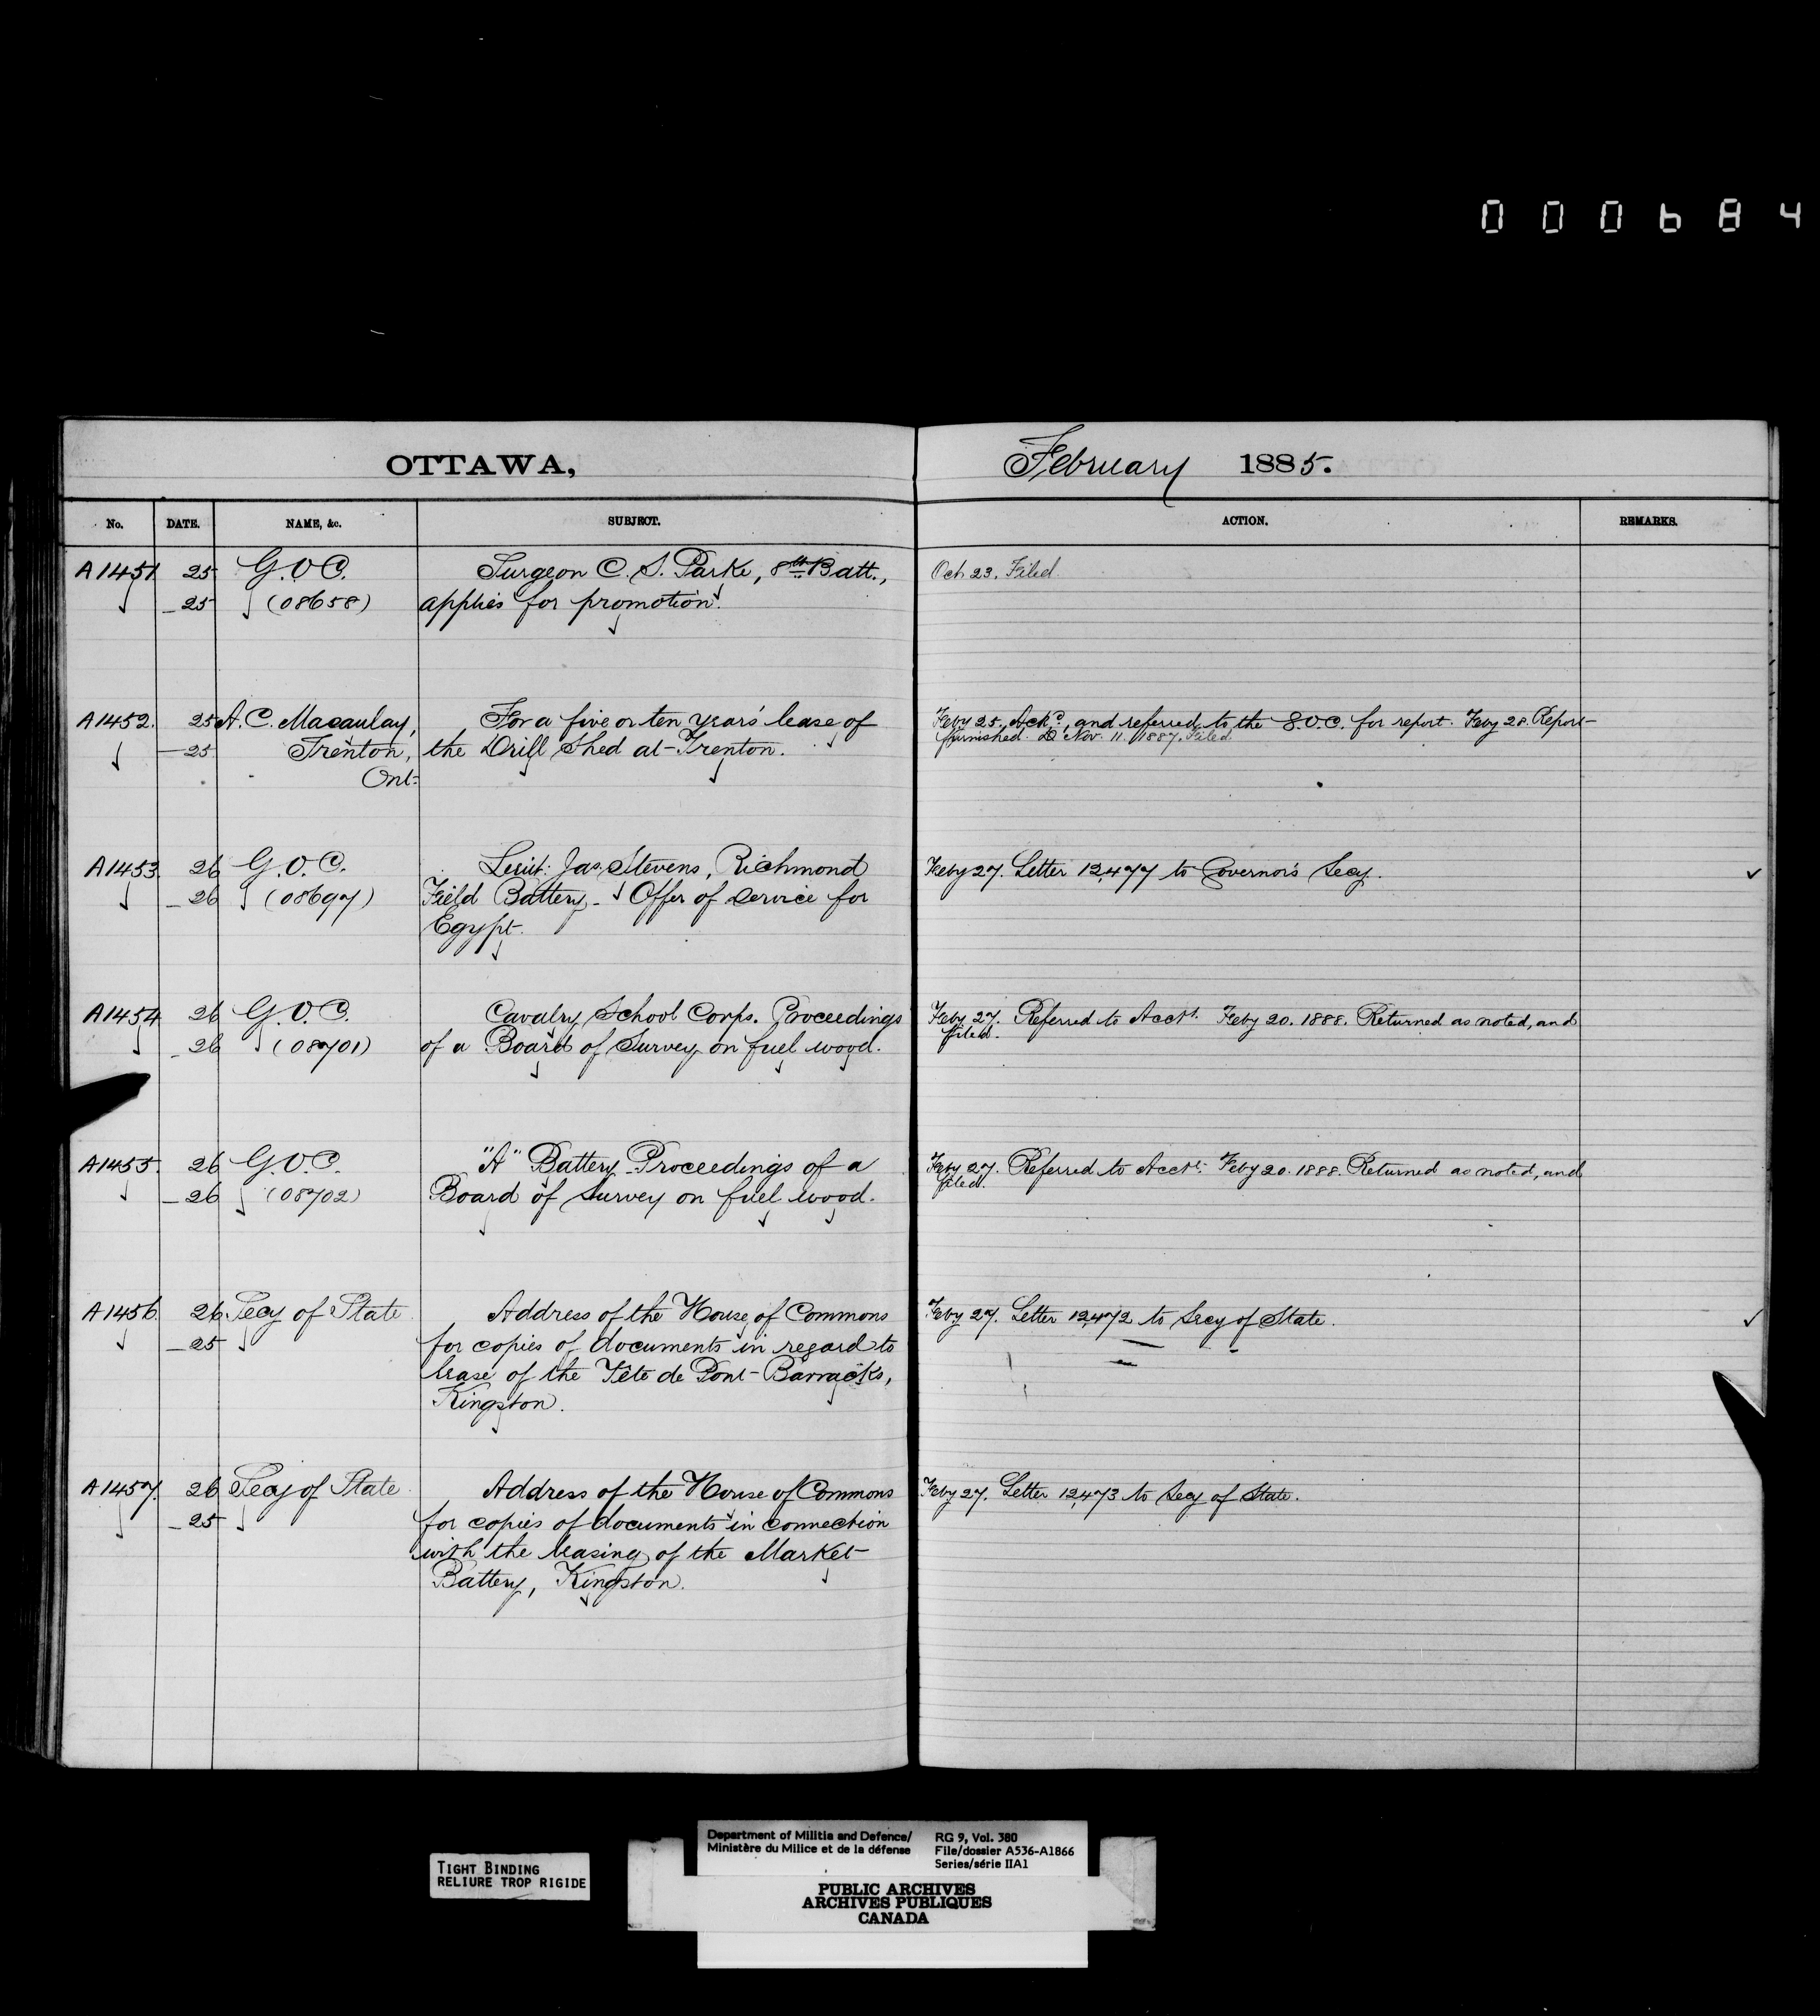 000684
OTTAWA,
February 1885.
No. DATE. NAME, &c. SUBJECT. ACTION. REMARKS.
A1451 25 G.O.C. Surgeon C. S. Parke, 8th Batt., Oct 23. Filed.
25 (08658) applies for promotion.
A1452. 25 A. C. Macaulay, For a five or ten years' lease of Feby 25. Ackd, and referred to the G.O.C. for report. Feby 28. Report
25 Trenton, the Drill Shed at Trenton. furnished. Nov. 11. 1887. Filed.
Ont.
A1453 26 G.O.C. Lieut. Jas. Stevens, Richmond Feby 27. Letter 12,477 to Governor's Secy.
26 (08697) Field Battery - Offer of service for
Egypt.
A1454 26 G.O.C. Cavalry School Corps. Proceedings Feby 27. Referred to Acct. Feby 20. 1888. Returned as noted, and
26 (08701) of a Board of Survey on fuel wood. filed.
A1455. 26 G.O.C. "A" Battery - Proceedings of a Feby 27. Referred to Acct. Feby 20. 1888. Returned as noted, and
26 (08702) Board of Survey on fuel wood. filed.
A1456. 26 Secy of State Address of the House of Commons Feby 27. Letter 12,472 to Secy of State.
25 for copies of documents in regard to
lease of the Tête de Pont Barracks,
Kingston.
A1457. 26 Secy of State Address of the House of Commons Feby 27. Letter 12,473 to Secy of State.
25 for copies of documents in connection
with the leasing of the Market
Battery, Kingston.
TIGHT BINDING
RELIURE TROP RIGIDE
Department of Militia and Defence/
Ministère du Milice et de la défense
RG 9, Vol. 380
File/dossier A536-A1866
Series/série IIA1
PUBLIC ARCHIVES
ARCHIVES PUBLIQUES
CANADA